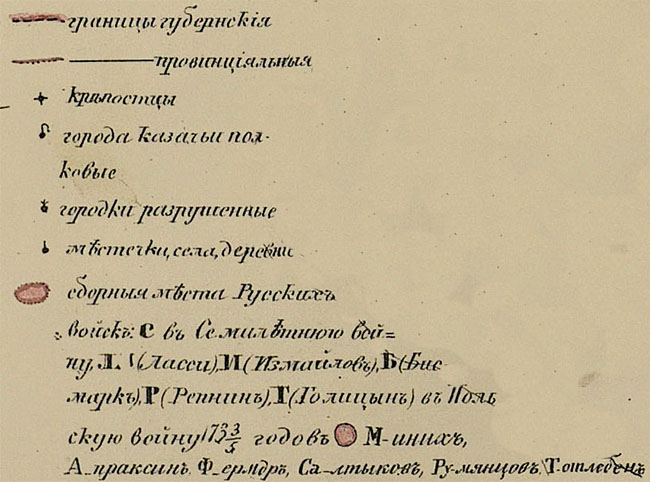 границы губернскія
———провинціяльныя
Крѣпостцы
города казачьи пол-
ковые
городки разрушенные
мѣстечки, села, деревни
сборныя мѣста Русскихъ
войскъ: С въ Семилѣтнюю вой=
ну, Л. (Ласси), И (Измайловъ), Б (Бис-
маркъ), Р (Репнин), Г (Голицынъ) въ Поль
скую войну 173 3/5 годовъ М-инихъ,
А-праксинъ Ф-ерморъ, Са-лтыковъ, Ру-мянцовъ, Т-отлебенъ